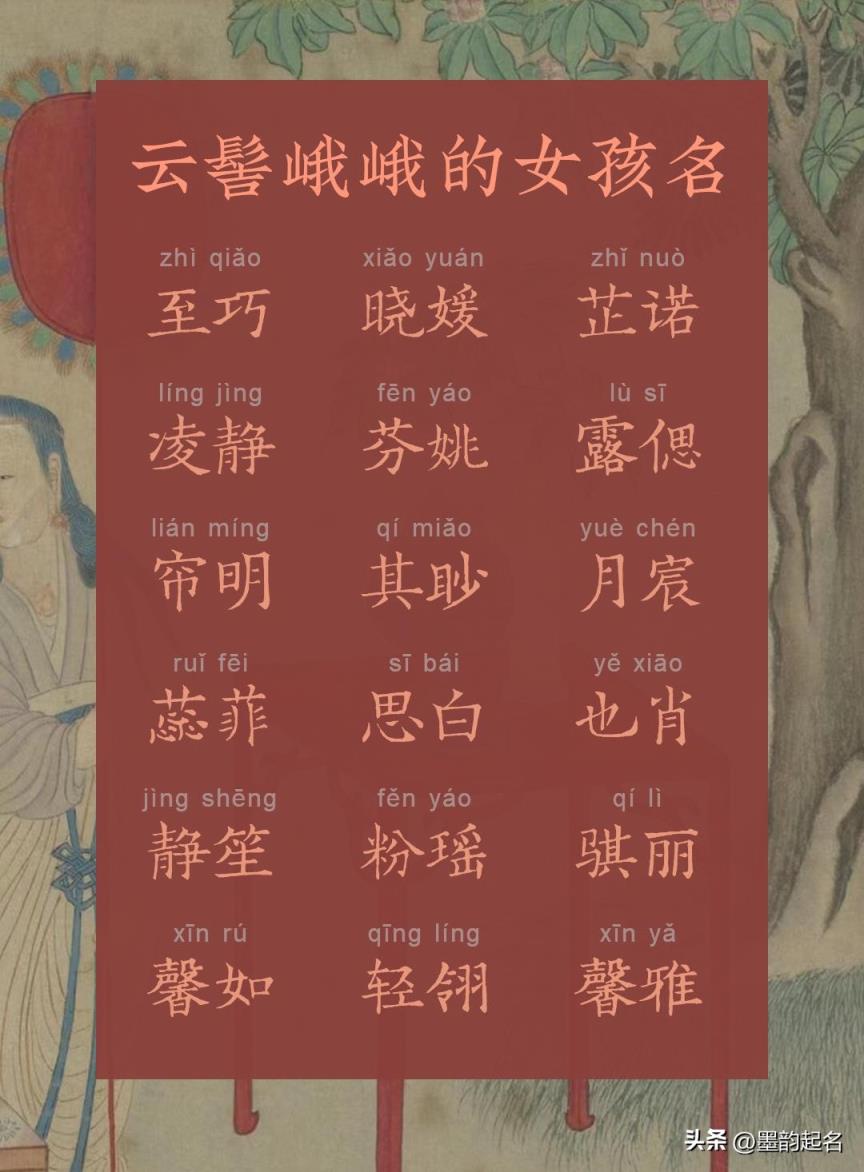 云髻峨峨的女孩名
zhì qiǎo xiǎo yuán zhǐ nuò
至巧 晓媛 芷诺
líng jìng fēn yáo lù sī
凌静 芬姚 露偲
lián míng qí miǎo yuè chén
帘明 其眇 月宸
ruǐ fēi sī bái yě xiāo
蕊菲 思白 也肖
jìng shēng fěn yáo qí lì
静笙 粉瑶 骐丽
xīn rú qīng líng xīn yǎ
馨如 轻翎 馨雅
头条 @墨韵起名